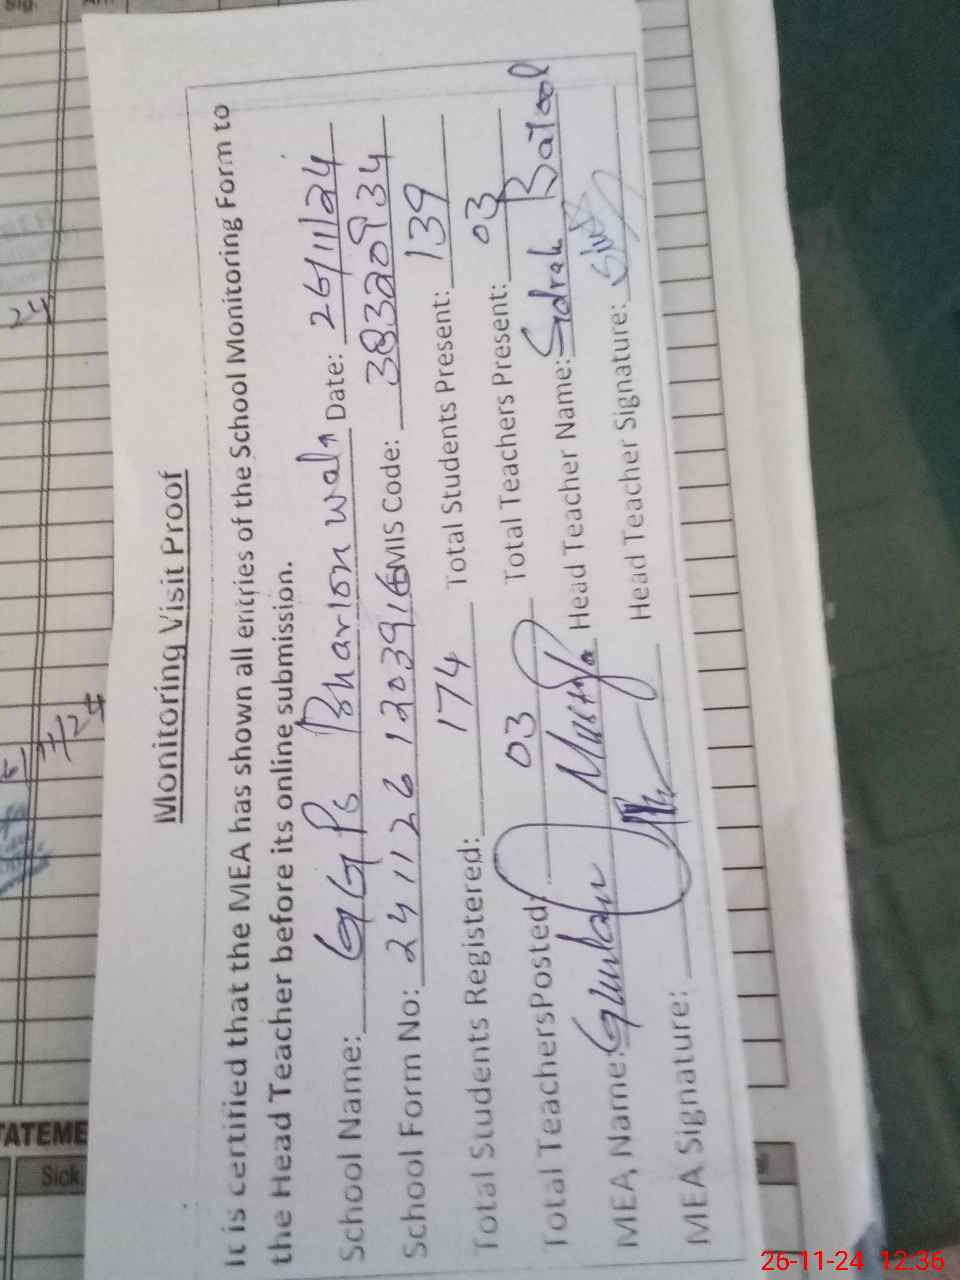 Monitoring Visit Proof
It is certified that the MEA has shown all entries of the School Monitoring Form to
the Head Teacher before its online submission.
School Name: GGPS Bharion wala Date: 26/11/24
School Form No: 2411261203916 EMIS Code: 38320934
Total Students Registered: 174 Total Students Present: 139
Total TeachersPosted: 03 Total Teachers Present: 03
MEA Name: Ghulam Mustafa Head Teacher Name: Sidrah Batool
MEA Signature: Head Teacher Signature:
TATEME
Sick
Sig.
26-11-24 12:36